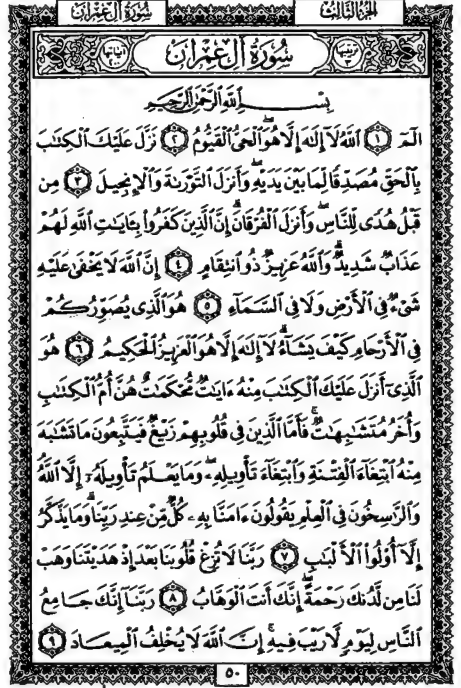 سُورَةُ آلِ عِمْرَانَ
الجُزءُ الثَّالِثُ
سُورَةُ آلِ عِمْرَانَ
بِسْمِ ٱللَّهِ ٱلرَّحْمَٰنِ ٱلرَّحِيمِ
الٓمٓ ١ ٱللَّهُ لَآ إِلَٰهَ إِلَّا هُوَ ٱلْحَىُّ ٱلْقَيُّومُ ٢ نَزَّلَ عَلَيْكَ ٱلْكِتَٰبَ
بِٱلْحَقِّ مُصَدِّقًا لِّمَا بَيْنَ يَدَيْهِ وَأَنزَلَ ٱلتَّوْرَىٰةَ وَٱلْإِنجِيلَ ٣ مِن
قَبْلُ هُدًى لِّلنَّاسِ وَأَنزَلَ ٱلْفُرْقَانَ ۗ إِنَّ ٱلَّذِينَ كَفَرُوا۟ بِـَٔايَٰتِ ٱللَّهِ لَهُمْ
عَذَابٌ شَدِيدٌ ۗ وَٱللَّهُ عَزِيزٌ ذُو ٱنتِقَامٍ ٤ إِنَّ ٱللَّهَ لَا يَخْفَىٰ عَلَيْهِ
شَىْءٌ فِى ٱلْأَرْضِ وَلَا فِى ٱلسَّمَآءِ ٥ هُوَ ٱلَّذِى يُصَوِّرُكُمْ
فِى ٱلْأَرْحَامِ كَيْفَ يَشَآءُ ۚ لَآ إِلَٰهَ إِلَّا هُوَ ٱلْعَزِيزُ ٱلْحَكِيمُ ٦ هُوَ
ٱلَّذِىٓ أَنزَلَ عَلَيْكَ ٱلْكِتَٰبَ مِنْهُ ءَايَٰتٌ مُّحْكَمَٰتٌ هُنَّ أُمُّ ٱلْكِتَٰبِ
وَأُخَرُ مُتَشَٰبِهَٰتٌ ۖ فَأَمَّا ٱلَّذِينَ فِى قُلُوبِهِمْ زَيْغٌ فَيَتَّبِعُونَ مَا تَشَٰبَهَ
مِنْهُ ٱبْتِغَآءَ ٱلْفِتْنَةِ وَٱبْتِغَآءَ تَأْوِيلِهِۦ ۗ وَمَا يَعْلَمُ تَأْوِيلَهُۥٓ إِلَّا ٱللَّهُ
وَٱلرَّٰسِخُونَ فِى ٱلْعِلْمِ يَقُولُونَ ءَامَنَّا بِهِۦ كُلٌّ مِّنْ عِندِ رَبِّنَا ۗ وَمَا يَذَّكَّرُ
إِلَّآ أُو۟لُوا۟ ٱلْأَلْبَٰبِ ٧ رَبَّنَا لَا تُزِغْ قُلُوبَنَا بَعْدَ إِذْ هَدَيْتَنَا وَهَبْ
لَنَا مِن لَّدُنكَ رَحْمَةً ۚ إِنَّكَ أَنتَ ٱلْوَهَّابُ ٨ رَبَّنَآ إِنَّكَ جَامِعُ
ٱلنَّاسِ لِيَوْمٍ لَّا رَيْبَ فِيهِ ۚ إِنَّ ٱللَّهَ لَا يُخْلِفُ ٱلْمِيعَادَ ٩
٥٠